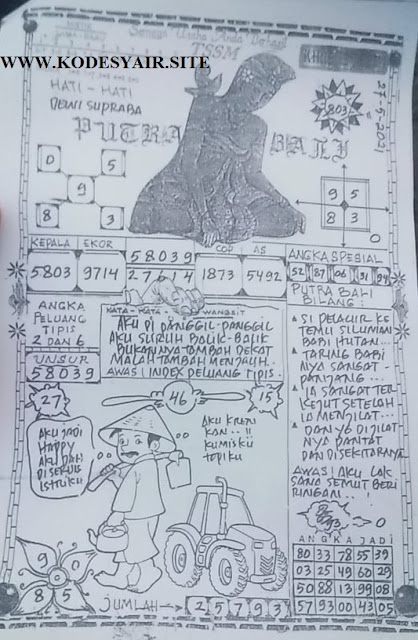 Semoga Usaha Anda Berhasil
TSSM
WWW.KODESYAIR.SITE
HATI - HATI
DEWI SUPRABA
PUTRA BALI
803
27-5-2021
0 5
9
8 3
9 5
8 3
0
KEPALA EKOR
5803 9714
58039
27614
COP AS
1873 5492
ANGKA SPESIAL
52 87 06 31 94
ANGKA
PELUANG
TIPIS
2 DAN 6
UNSUR
58039
KATA - KATA WANGSIT
AKU DI PANGGIL-PANGGIL
AKU SURUH BOLIK-BALIK
BUKANNYA TAMBAH DEKAT
MALAH TAMBAH MENJAUH
AWAS! INDEX PELUANG TIPIS.
PUTRA BALI
BILANG:
SI PELACUR KE
TEMU SILUMAN
BABI HUTAN...
TARING BABI
NYA SANGAT
PANJANG...
IA SANGAT TER
KEJUT SETELAH
IA MENJILAT...
DAN YG DIJILAT
NYA PANTAT
DAN DISEKITARNYA
AWAS! AKU LAK
SANA SEMUT BERI
RINGAN..!
0
27
46
15
AKU JADI
HAPPY
AKU DAH
DISEKUIS
ISTRIKU
AKU KREN
KAN..!!
KUMISKU
TOPIKU
9 0
8 5
JUMLAH → 2 5 7 9 3
ANGKA JADI
80 33 78 55 39
03 25 49 60 29
50 88 13 99 08
57 93 00 43 05